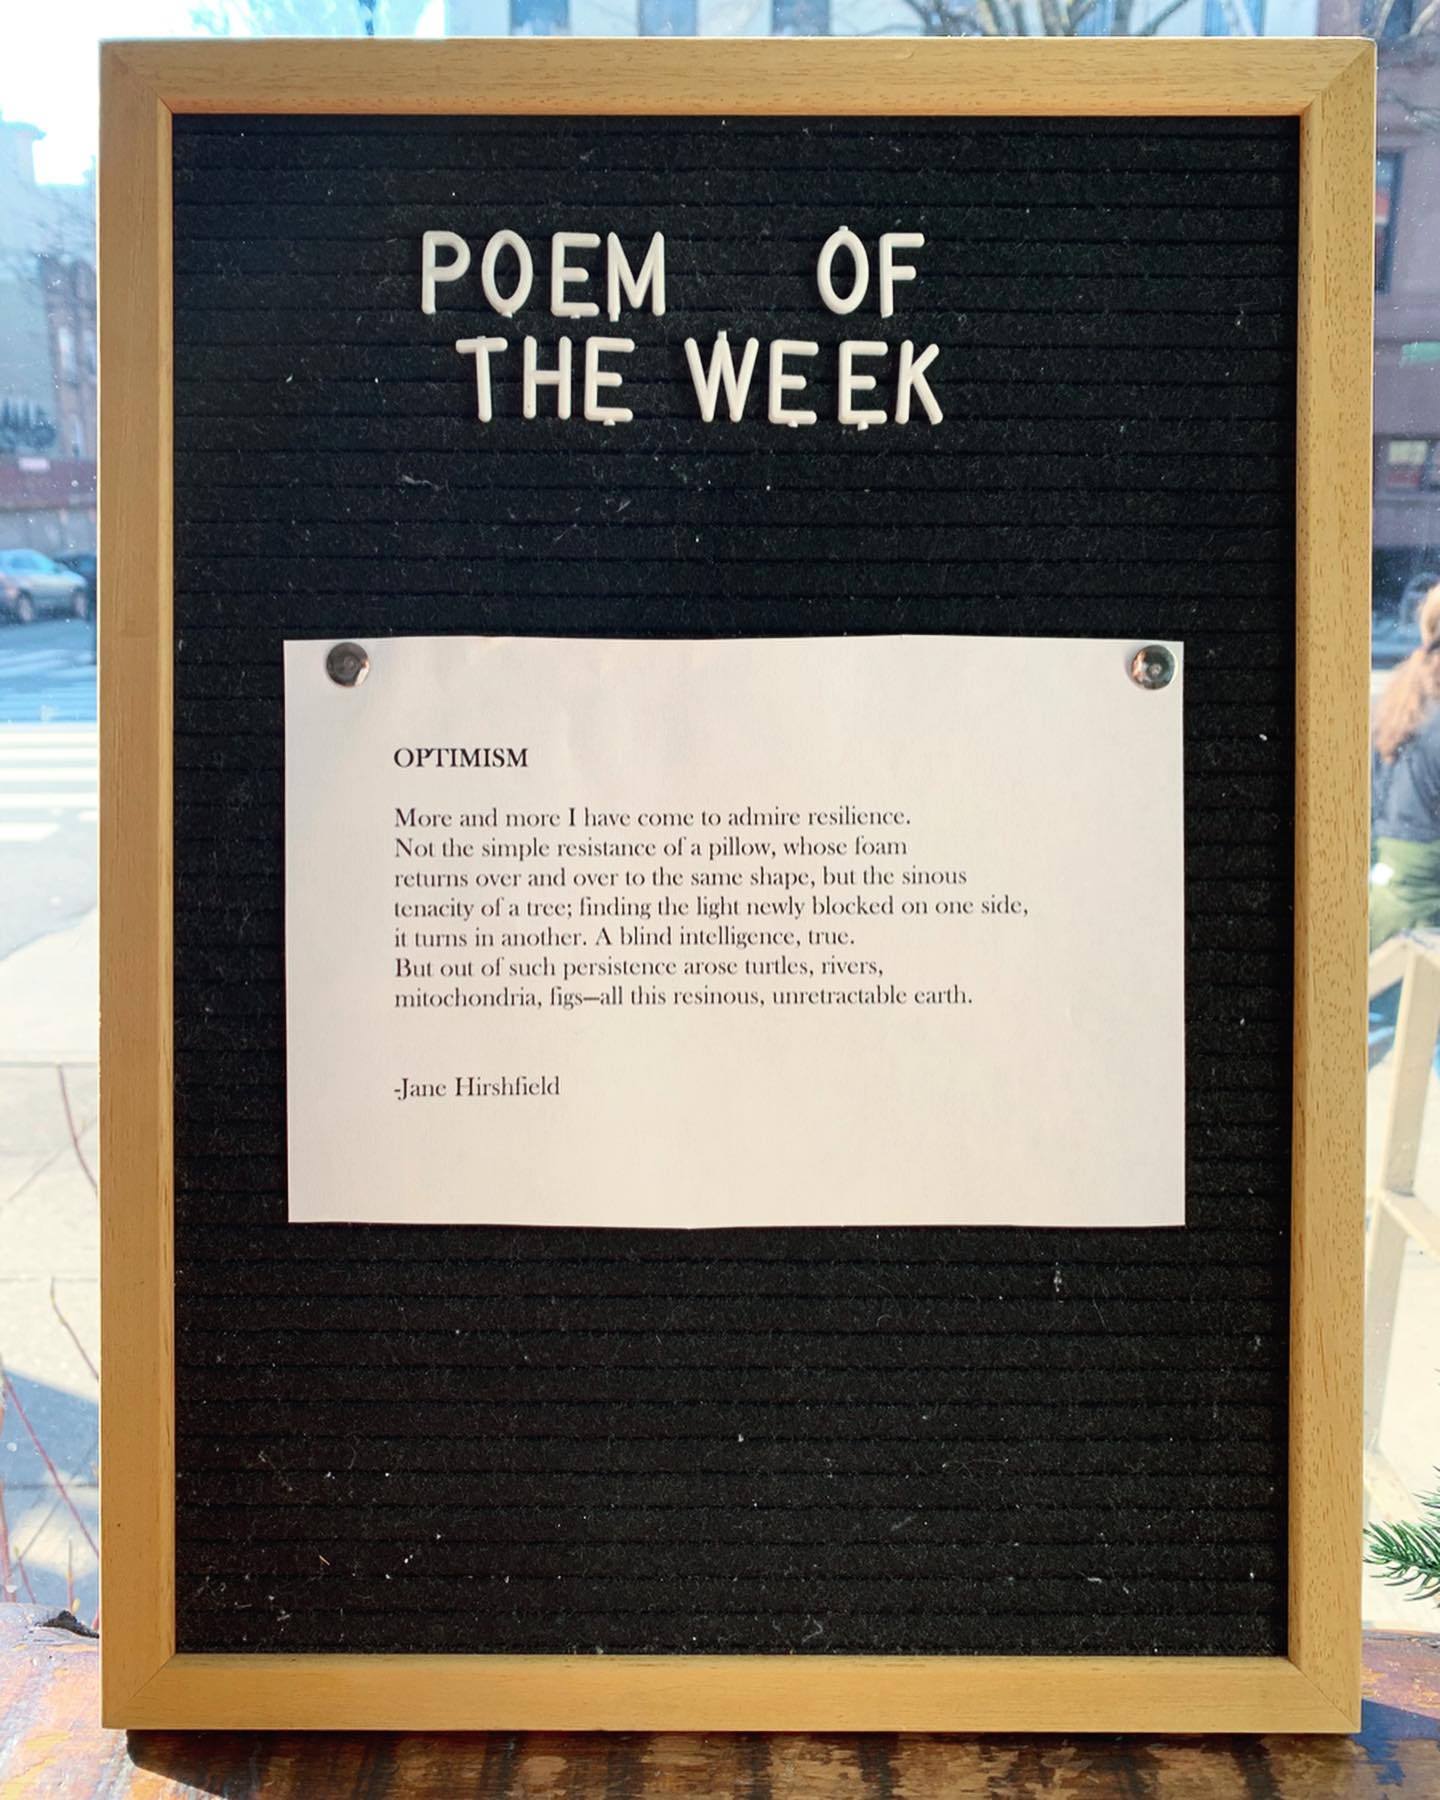 POEM OF
THE WEEK
OPTIMISM
More and more I have come to admire resilience.
Not the simple resistance of a pillow, whose foam
returns over and over to the same shape, but the sinous
tenacity of a tree; finding the light newly blocked on one side,
it turns in another. A blind intelligence, true.
But out of such persistence arose turtles, rivers,
mitochondria, figs—all this resinous, unretractable earth.
-Jane Hirshfield